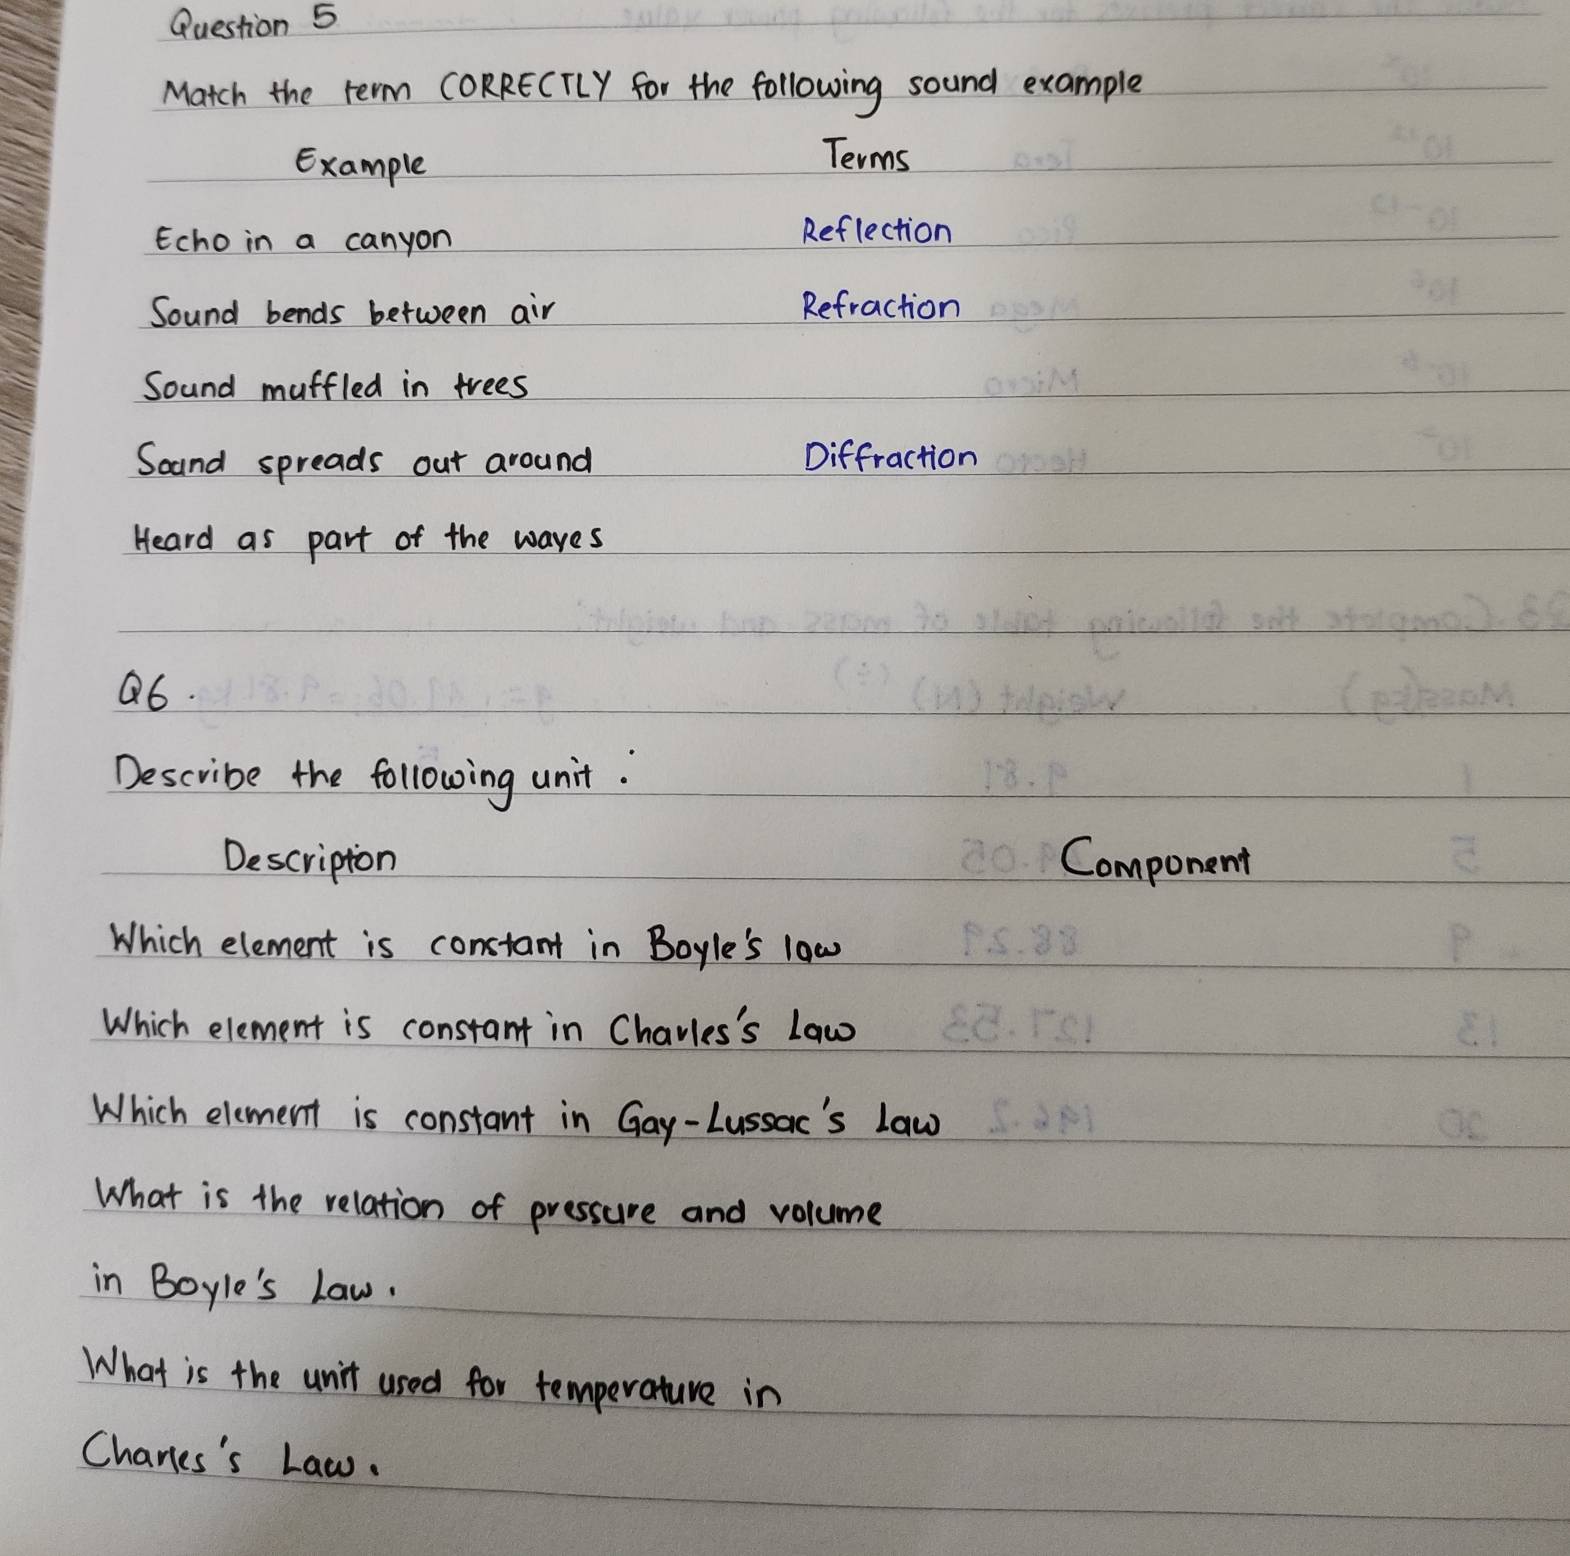 Question 5
Match the term CORRECTLY for the following sound example
Example Terms
Echo in a canyon Reflection
Sound bends between air Refraction
Sound muffled in trees
Sound spreads out around Diffraction
Heard as part of the waves
Q6.
Describe the following unit :
Description Component
Which element is constant in Boyle's law
Which element is constant in Charles's Law
Which element is constant in Gay-Lussac's Law
What is the relation of pressure and volume
in Boyle's Law.
What is the unit used for temperature in
Charles's Law.